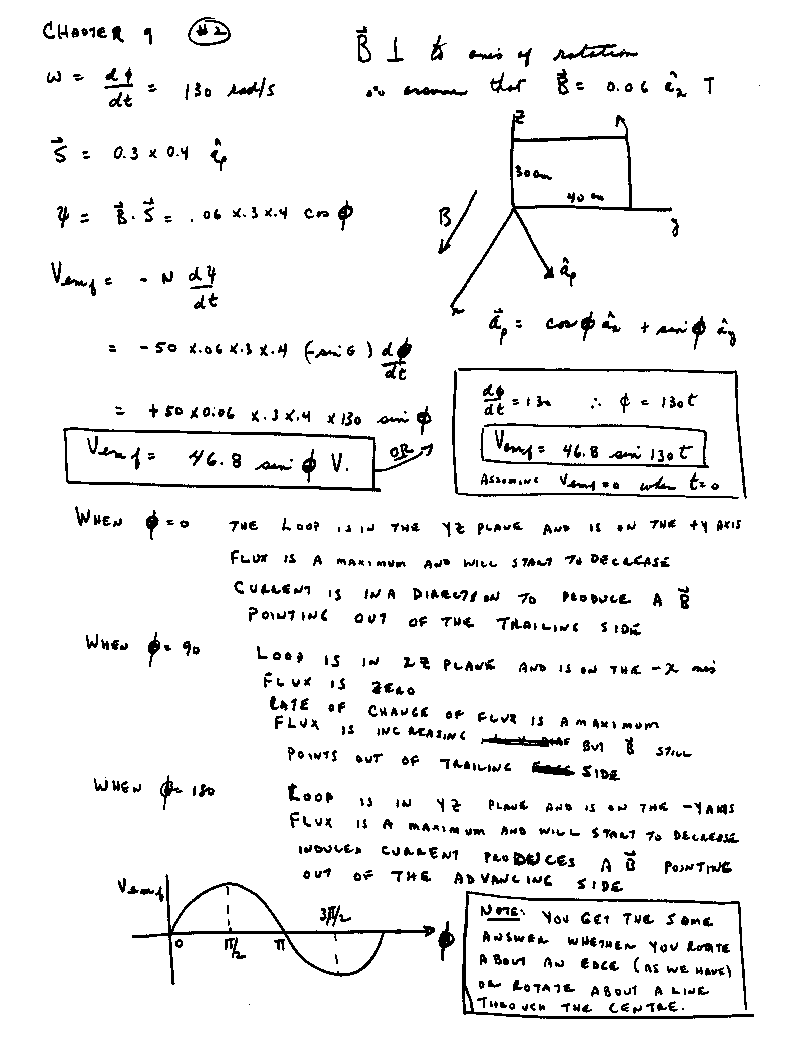 CHAPTER 9 #2
B⃗ ⊥ to axis of rotation
ω = dφ/dt = 130 rad/s
∴ assume that B⃗ = 0.06 âx T
S⃗ = 0.3 x 0.4 âρ
z
30 cm
40 cm
y
B
âρ
x
ψ = B⃗ · S⃗ = .06 x .3 x .4 cos φ
Vemf = - N dψ/dt
a⃗ρ = cos φ âx + sin φ ây
= -50 x .06 x .3 x .4 (-sin θ) dφ/dt
= +50 x 0.06 x .3 x .4 x 130 sin φ
Vemf = 46.8 sin φ V.
OR
dφ/dt = 130 ∴ φ = 130t
Vemf = 46.8 sin 130t
ASSUMING Vemf = 0 when t=0
WHEN φ = 0 THE LOOP IS IN THE YZ PLANE AND IS ON THE +Y AXIS
FLUX IS A MAXIMUM AND WILL START TO DECREASE
CURRENT IS IN A DIRECTION TO PRODUCE A B⃗
POINTING OUT OF THE TRAILING SIDE
WHEN φ = 90 LOOP IS IN XZ PLANE AND IS ON THE -X axis
FLUX IS ZERO
RATE OF CHANGE OF FLUX IS A MAXIMUM
FLUX IS INCREASING BUT B⃗ STILL
POINTS OUT OF TRAILING SIDE
WHEN φ = 180 LOOP IS IN YZ PLANE AND IS ON THE -Y AXIS
FLUX IS A MAXIMUM AND WILL START TO DECREASE
INDUCED CURRENT PRODUCES A B⃗ POINTING
OUT OF THE ADVANCING SIDE
Vemf
0 π/2 π 3π/2 φ
NOTE: YOU GET THE SAME
ANSWER WHETHER YOU ROTATE
ABOUT AN EDGE (AS WE HAVE)
OR ROTATE ABOUT A LINE
THROUGH THE CENTRE.